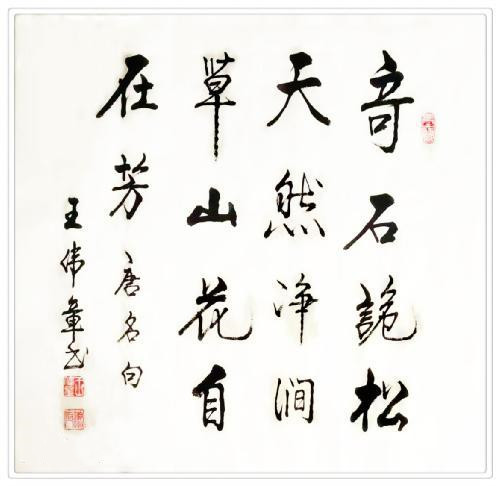 奇石詭松
天然净涧
草山花自
在芳 唐名句
王伟章书